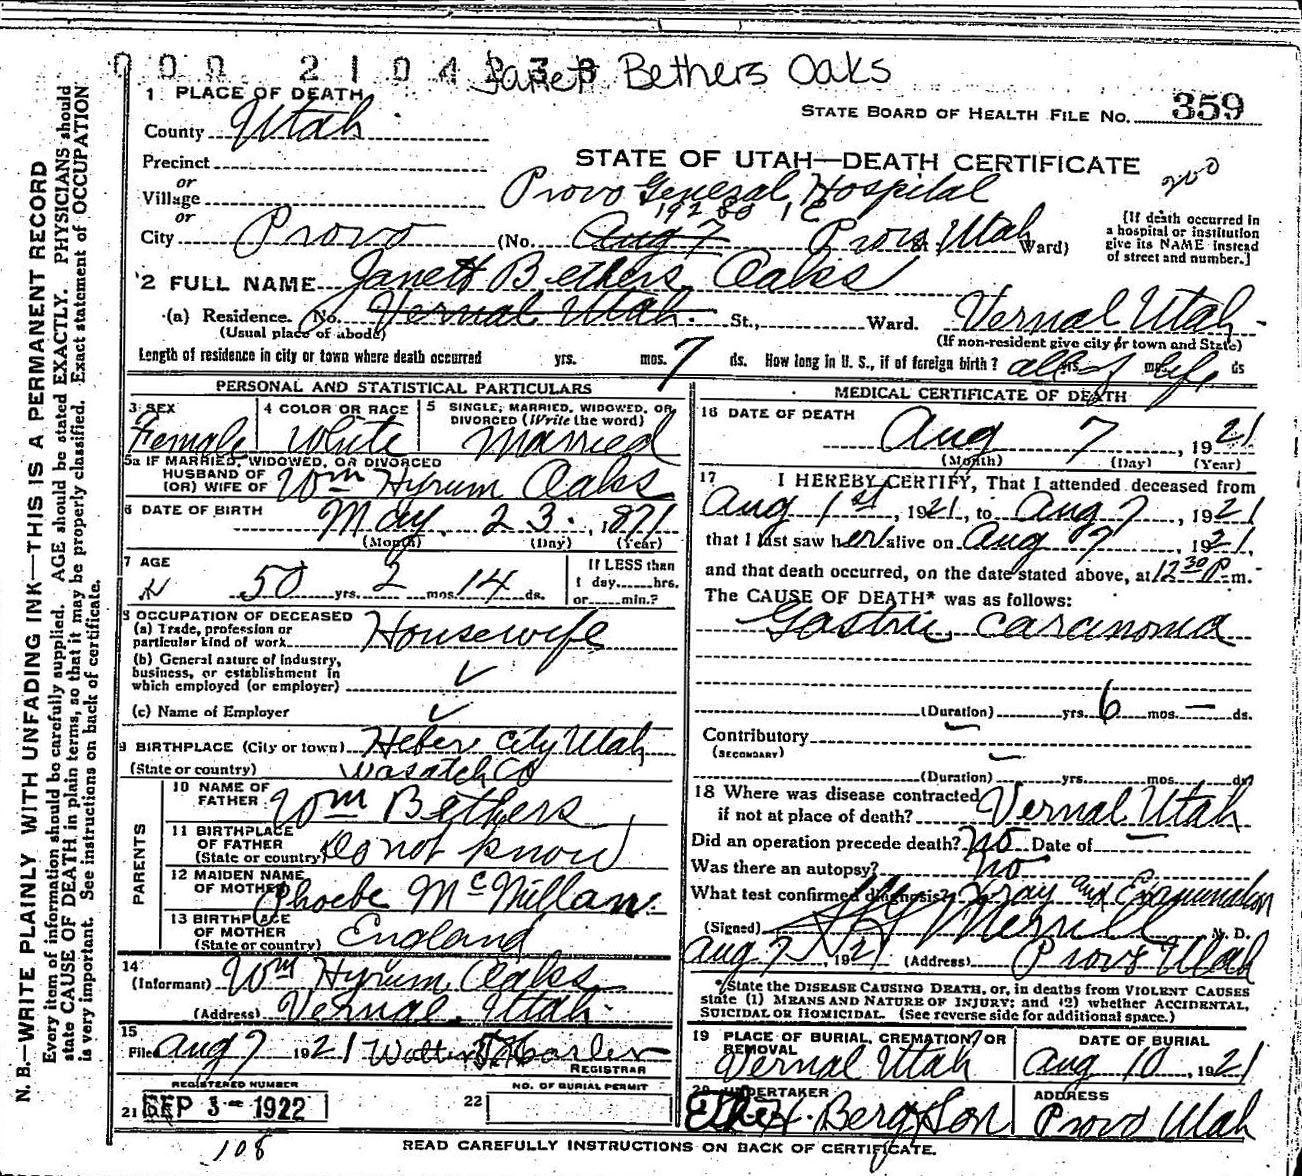 000 2104238 Janett Bethers Oaks
1 PLACE OF DEATH
STATE BOARD OF HEALTH FILE NO. 359
County Utah
STATE OF UTAH—DEATH CERTIFICATE
Precinct
200
or
Village
Provo General Hospital
or
City Provo (No. Aug 7 Provo St. Utah Ward)
[If death occurred in
a hospital or institution
give its NAME instead
of street and number.]
2 FULL NAME Janett Bethers Oaks
(a) Residence. No. Vernal Utah. St., Ward. Vernal Utah
(Usual place of abode) (If non-resident give city or town and State)
Length of residence in city or town where death occurred yrs. mos. 7 ds. How long in U. S., if of foreign birth? all yrs. of mos. life ds
PERSONAL AND STATISTICAL PARTICULARS
3 SEX
Female
4 COLOR OR RACE
White
5 SINGLE, MARRIED, WIDOWED, OR
DIVORCED (Write the word)
Married
5a IF MARRIED, WIDOWED, OR DIVORCED
HUSBAND OF
(OR) WIFE OF Wm Hyrum Oaks
6 DATE OF BIRTH May. 23. 1871
(Month) (Day) (Year)
7 AGE
50 yrs. 2 mos. 14 ds.
If LESS than
1 day hrs.
or min.?
8 OCCUPATION OF DECEASED
(a) Trade, profession or
particular kind of work Housewife
(b) General nature of industry,
business, or establishment in
which employed (or employer) ✓
(c) Name of Employer ✓
9 BIRTHPLACE (City or town) Heber City Utah
(State or country) Wasatch Co
PARENTS
10 NAME OF
FATHER Wm Bethers
11 BIRTHPLACE
OF FATHER
(State or country) Do not know
12 MAIDEN NAME
OF MOTHER Phoebe McMillan
13 BIRTHPLACE
OF MOTHER
(State or country) England
14
(Informant) Wm Hyrum Oaks
(Address) Vernal Utah
15
Filed Aug 7 1921
REGISTRAR
REGISTERED NUMBER
NO. OF BURIAL PERMIT
21 SEP 3 - 1922 22
108
MEDICAL CERTIFICATE OF DEATH
16 DATE OF DEATH
Aug 7, 1921
(Month) (Day) (Year)
17 I HEREBY CERTIFY, That I attended deceased from
Aug 1st, 1921, to Aug 7, 1921
that I last saw her alive on Aug 7, 1921,
and that death occurred, on the date stated above, at 12 30 P m.
The CAUSE OF DEATH* was as follows:
Gastric carcinoma
(Duration) yrs. 6 mos. — ds.
Contributory
(SECONDARY)
(Duration) yrs. mos. ds.
18 Where was disease contracted
if not at place of death? Vernal Utah
Did an operation precede death? No Date of —
Was there an autopsy? no
What test confirmed diagnosis? Xray and Examination
(Signed) Merrill M. D.
Aug 7, 1921 (Address) Provo Utah
*State the DISEASE CAUSING DEATH, or, in deaths from VIOLENT CAUSES
state (1) MEANS AND NATURE OF INJURY; and (2) whether ACCIDENTAL,
SUICIDAL OR HOMICIDAL. (See reverse side for additional space.)
19 PLACE OF BURIAL, CREMATION, OR
REMOVAL
Vernal Utah
DATE OF BURIAL
Aug 10, 1921
20 UNDERTAKER
Berg & Son
ADDRESS
Provo Utah
READ CAREFULLY INSTRUCTIONS ON BACK OF CERTIFICATE.
N. B.—WRITE PLAINLY WITH UNFADING INK—THIS IS A PERMANENT RECORD
Every item of information should be carefully supplied. AGE should be stated EXACTLY. PHYSICIANS should
state CAUSE OF DEATH in plain terms, so that it may be properly classified. Exact statement of OCCUPATION
is very important. See instructions on back of certificate.